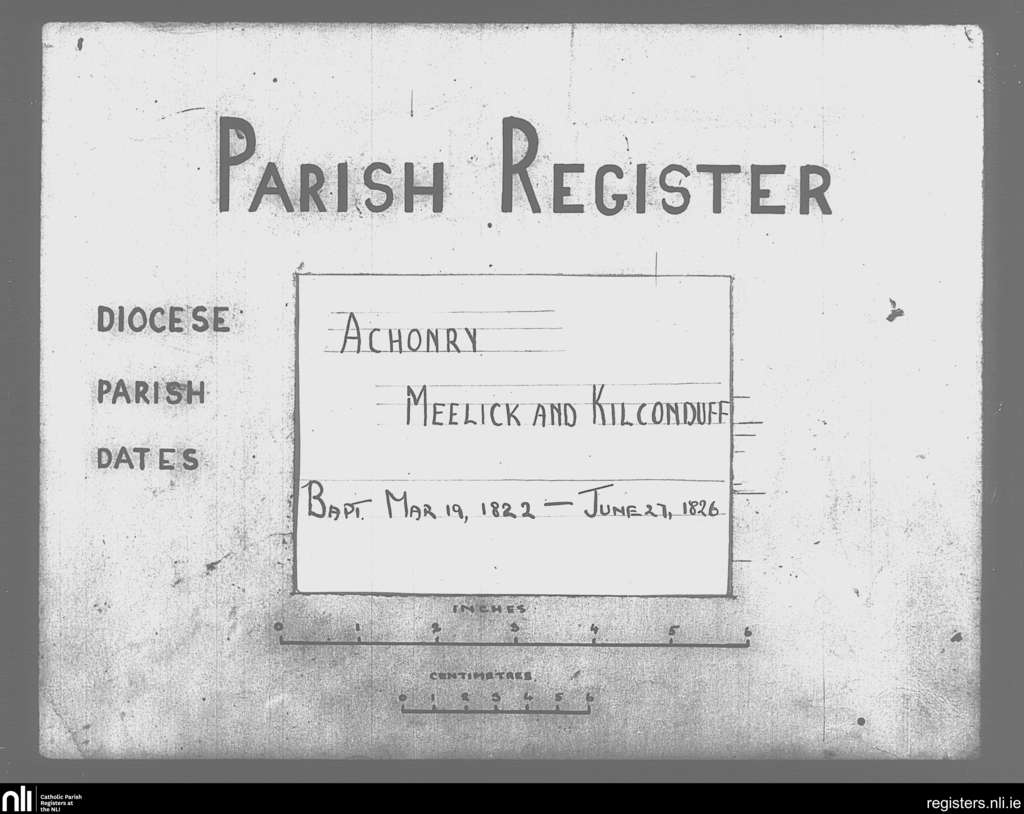 PARISH REGISTER
DIOCESE
ACHONRY
PARISH
MEELICK AND KILCONDUFF
DATES
BAPT. MAR 19, 1822 — JUNE 27, 1826
INCHES
0 1 2 3 4 5 6
CENTIMETRES
0 1 2 3 4 5 6
nli
Catholic Parish
Registers at
the NLI
registers.nli.ie